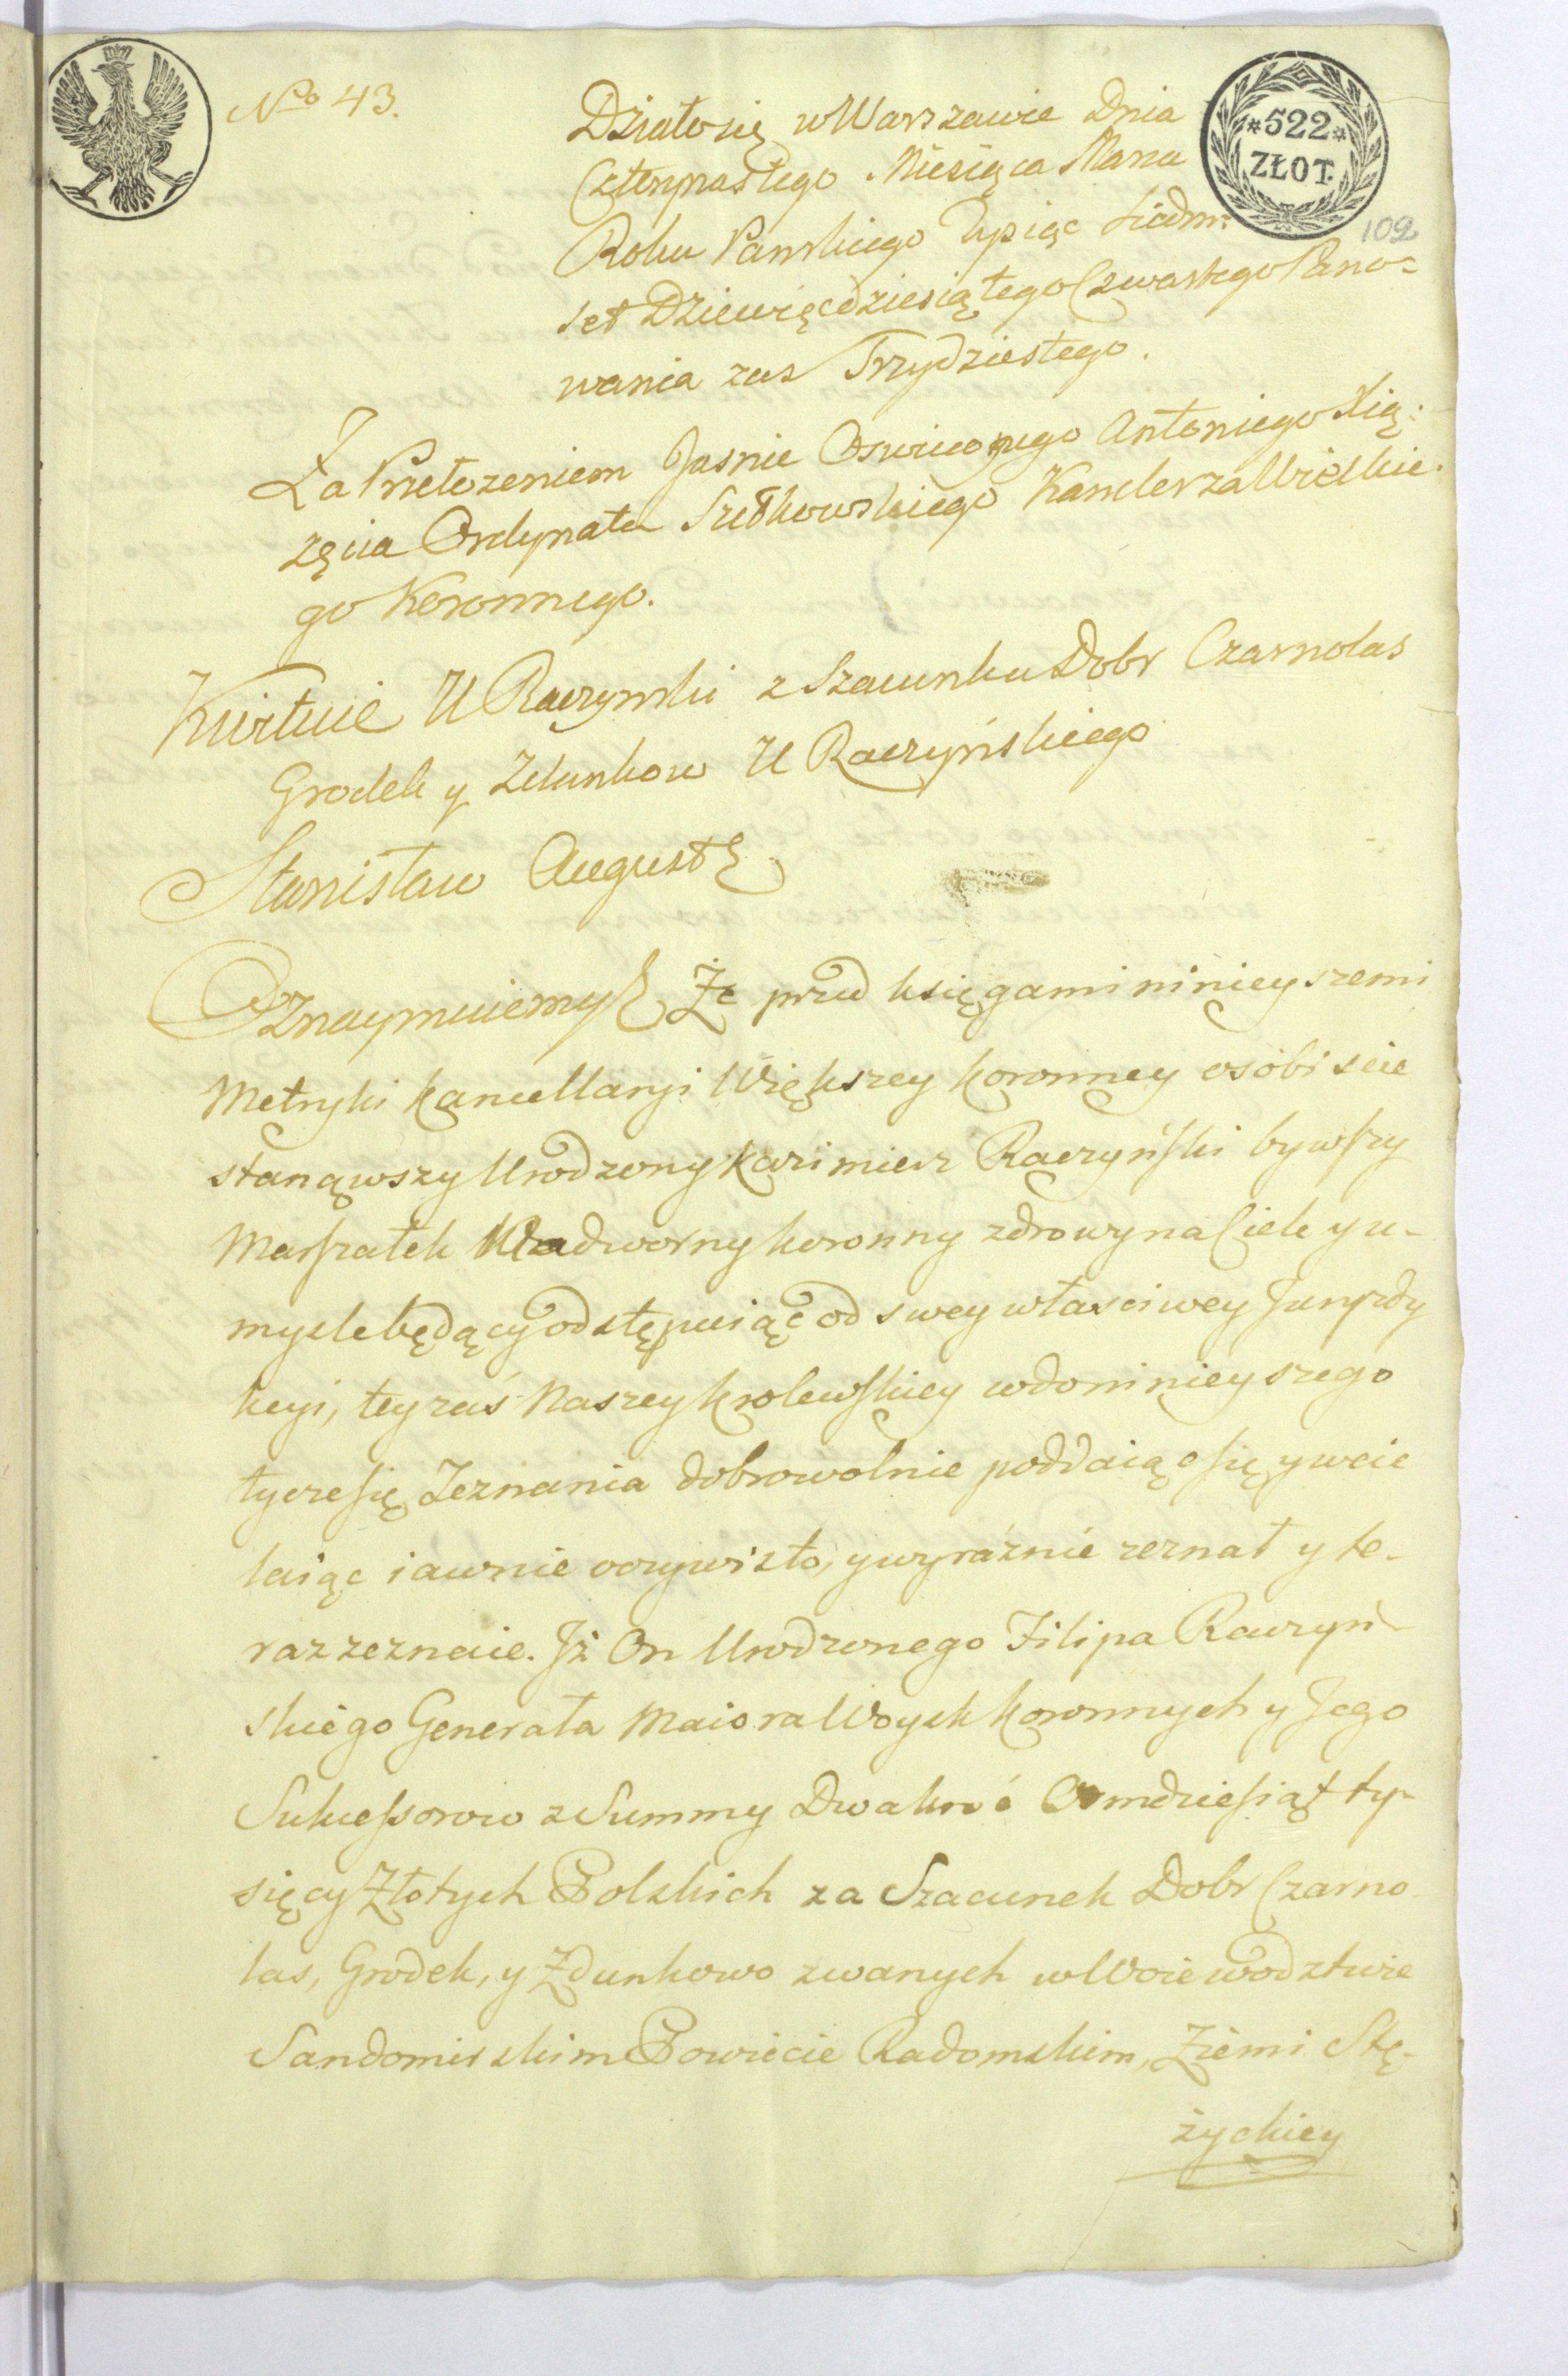 No 43.
Działo się w Warszawie Dnia
Czternastego Miesiąca Marca
Roku Panskiego Tysiąc siedm:
set Dziewięcdziesiątego Czwartego Pano=
wania zas Trzydziestego.
*522*
ZŁOT.
102
Za Przełozeniem Jasnie Oswieconego Antoniego Xią:
zęcia Ordynata Sułkowskiego Kanclerza Wielkie.
go Koronnego.
Kwituie U Raczynski z Szacunku Dobr Czarnolas
Grodek y Zdunkow U Raczyńskiego
Stanisław August
Oznaymuiemy Że przed księgami ninieyszemi
Metryki Kancellaryi Większey Koronney osobiscie
stanąwszy Urodzony Kazimierz Raczyński bywszy
Marszałek Nadworny koronny zdrowy na Ciele y u-
mysle będący odstępuiąc od swey własciwey Juryzdy
kcyi, tey zaś Naszey krolewskiey wdo ninieyszego
tycze się Zeznania dobrowolnie poddaiąc się y wcie
laiąc iawnie oczywisto, y wyraźnie zeznał y te-
raz zeznaie. Jż On Urodzonego Filipa Raczyń
skiego Generała Maiora Woysk koronnych y Jego
Sukcessorow z Summy Dwakroć Osmdziesiąt ty-
sięcy Złotych Polskich za Szacunek Dobr Czarno
las, Grodek, y Zdunkowo zwanych w Woiewodztwie
Sandomirskim Powiecie Radomskim, Ziemi Stę-
życkiey